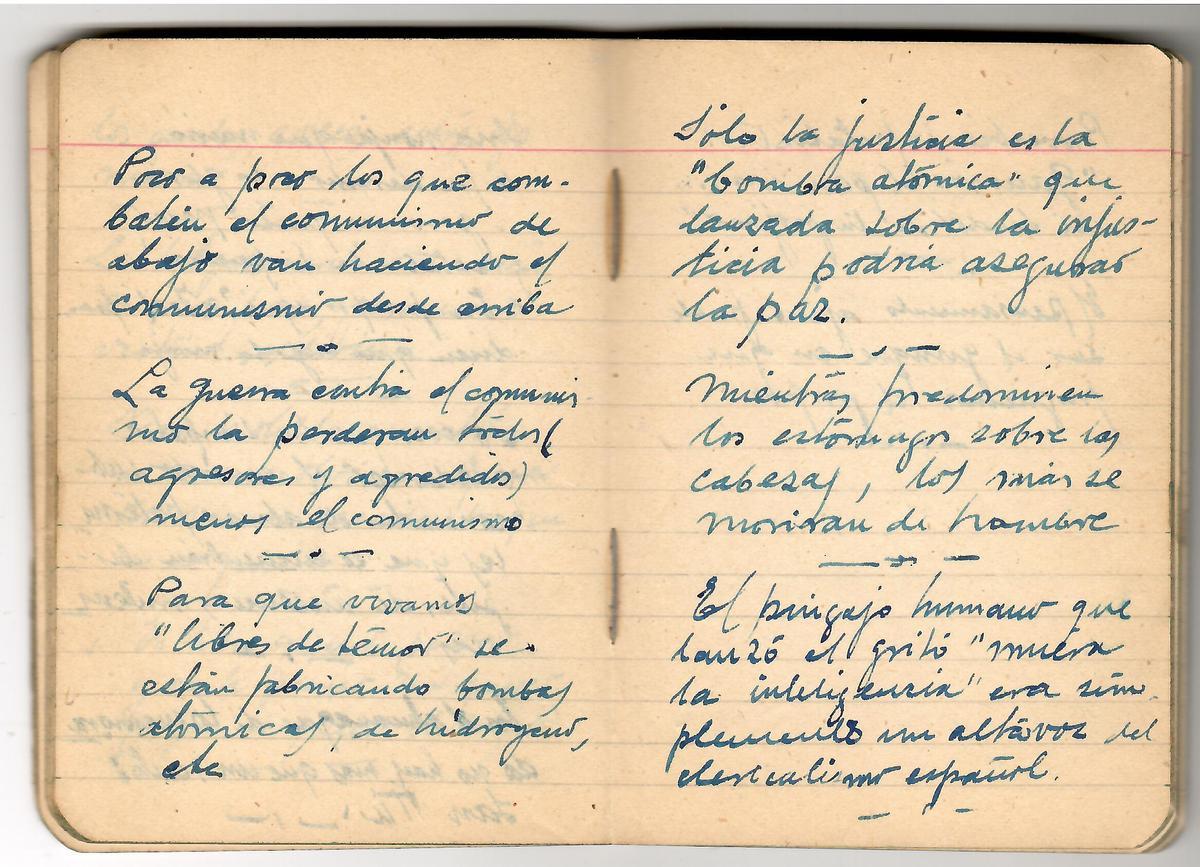 Poco a poco los que com-
baten el comunismo de
abajo van haciendo el
comunismo desde arriba
La guerra contra el comunis-
mo la perderan todos (
agresores y agredidos)
menos el comunismo
Para que vivamos
"libres de temor" se
están fabricando bombas
atómicas, de hidrogeno,
etc
Sólo la justicia es la
"bomba atómica" que
lanzada sobre la injus-
ticia podria asegurar
la paz.
Mientras predominen
los estómagos sobre las
cabezas, los más se
moriran de hambre
El pingajo humano que
lanzó el grito "muera
la inteligenzia" era sim-
plemente un altavoz del
clericalismo español.